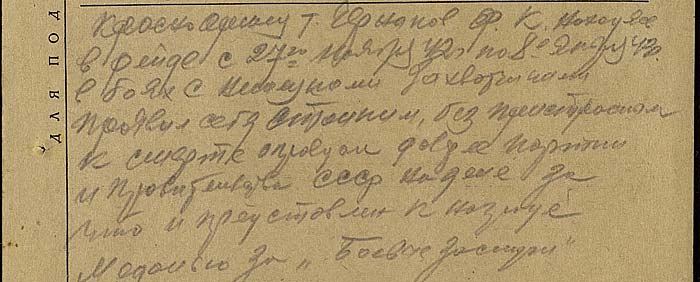 Красноармеец т. Чернонов Ф. К. находясь
в рейде с 27го ноября 42г по 8е января 43г.
в боях с немецкими захватчиками
проявил себя стойким, без
к смерти оправдал доверие партии
и правительства СССР на деле за
что и представлен к награде
Медалью за „Боевые заслуги"
ДЛЯ ПОД